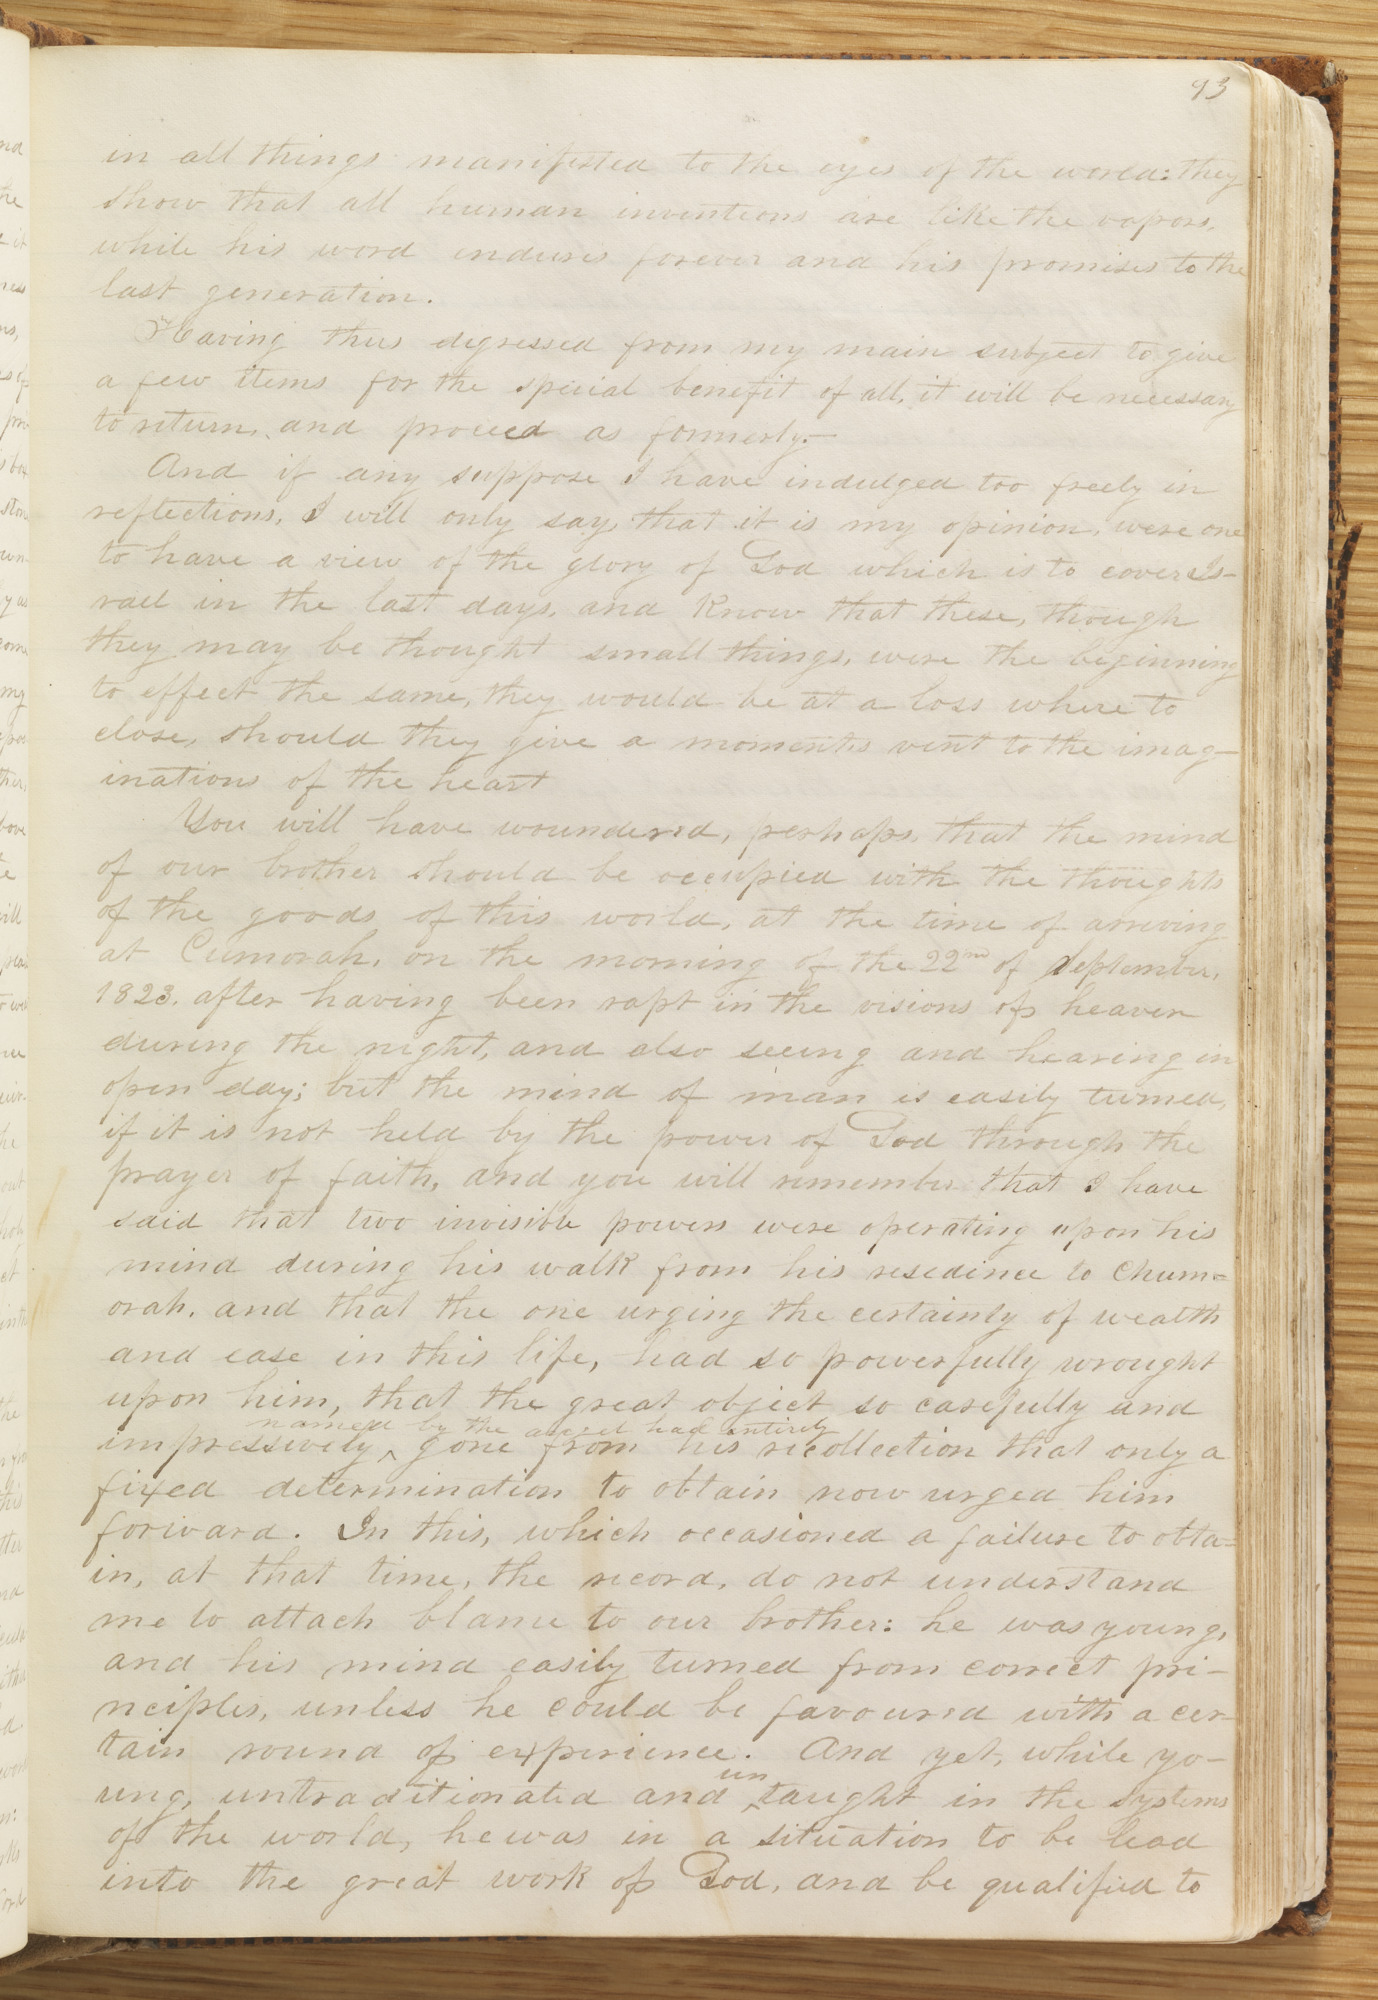 93
in all things manifested to the eyes of the world: they
show that all human inventions are like the vapors,
while his word endures forever and his promises to the
last generation.
Having thus digressed from my main subject to give
a few items for the special benefit of all, it will be necessary
to return, and proceed as formerly.—
And if any suppose I have indulged too freely in
reflections, I will only say, that it is my opinion, were one
to have a view of the glory of God which is to cover Is-
rael in the last days, and know that these, though
they may be thought small things, were the beginning
to effect the same, they would be at a loss where to
close, should they give a moments vent to the imag-
inations of the heart
You will have woundered, perhaps, that the mind
of our brother should be occupied with the thoughts
of the goods of this world, at the time of arriving
at Cumorah, on the morning of the 22nd of September,
1823. after having been rapt in the visions of heaven
during the night, and also seeing and hearing in
open day; but the mind of man is easily turned,
if it is not held by the power of God through the
prayer of faith, and you will remember that I have
said that two invisible powers were operating upon his
mind during his walk from his resedince to Chum=
orah, and that the one urging the certainty of wealth
and ease in this life, had so powerfully wrought
upon him, that the great object so carefully and
named by the angel had entirely
impressively ^ gone from his recollection that only a
fixed determination to obtain now urged him
forward. In this, which occasioned a failure to obta=
in, at that time, the record, do not understand
me to attach blame to our brother: he was young,
and his mind easily turned from correct pri-
nciples, unless he could be favoured with a cer-
tain round of experience. And yet, while yo-
un
ung, untraditionated and ^taught in the systems
of the world, he was in a situation to be lead
into the great work of God, and be qualified to